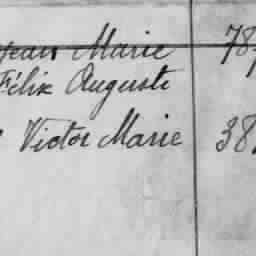 Jean Marie 78
Félix Auguste
Victor Marie 38